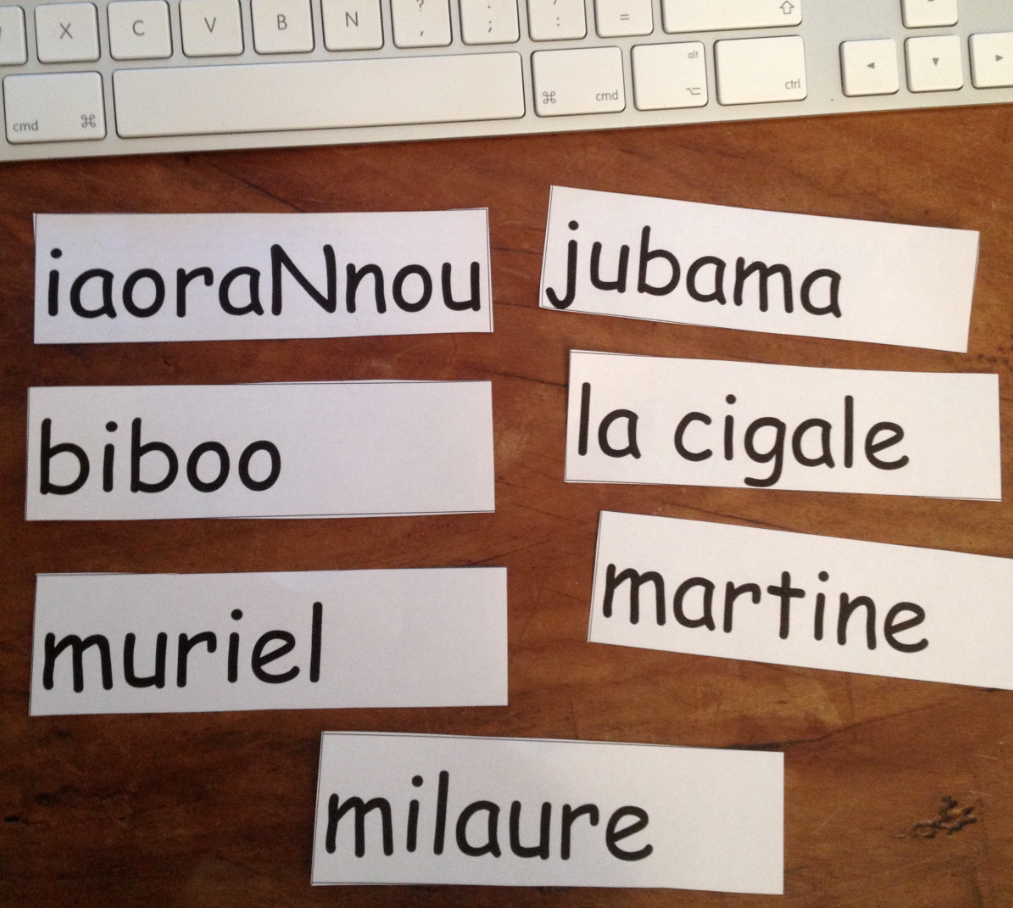 X C V B N ? , ; . : =
cmd ⌘ ⌘ cmd alt ⌥ ctrl
iaoraNnou
jubama
biboo
la cigale
muriel
martine
milaure